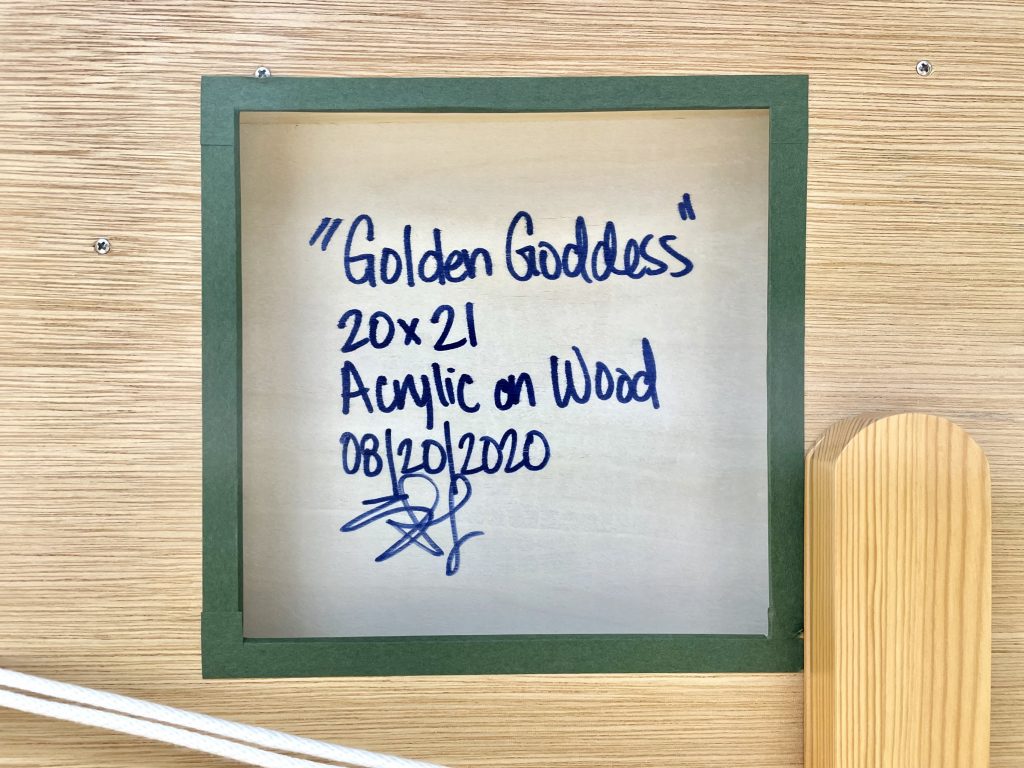 "Golden Goddess"
20x21
Acrylic on Wood
08/20/2020